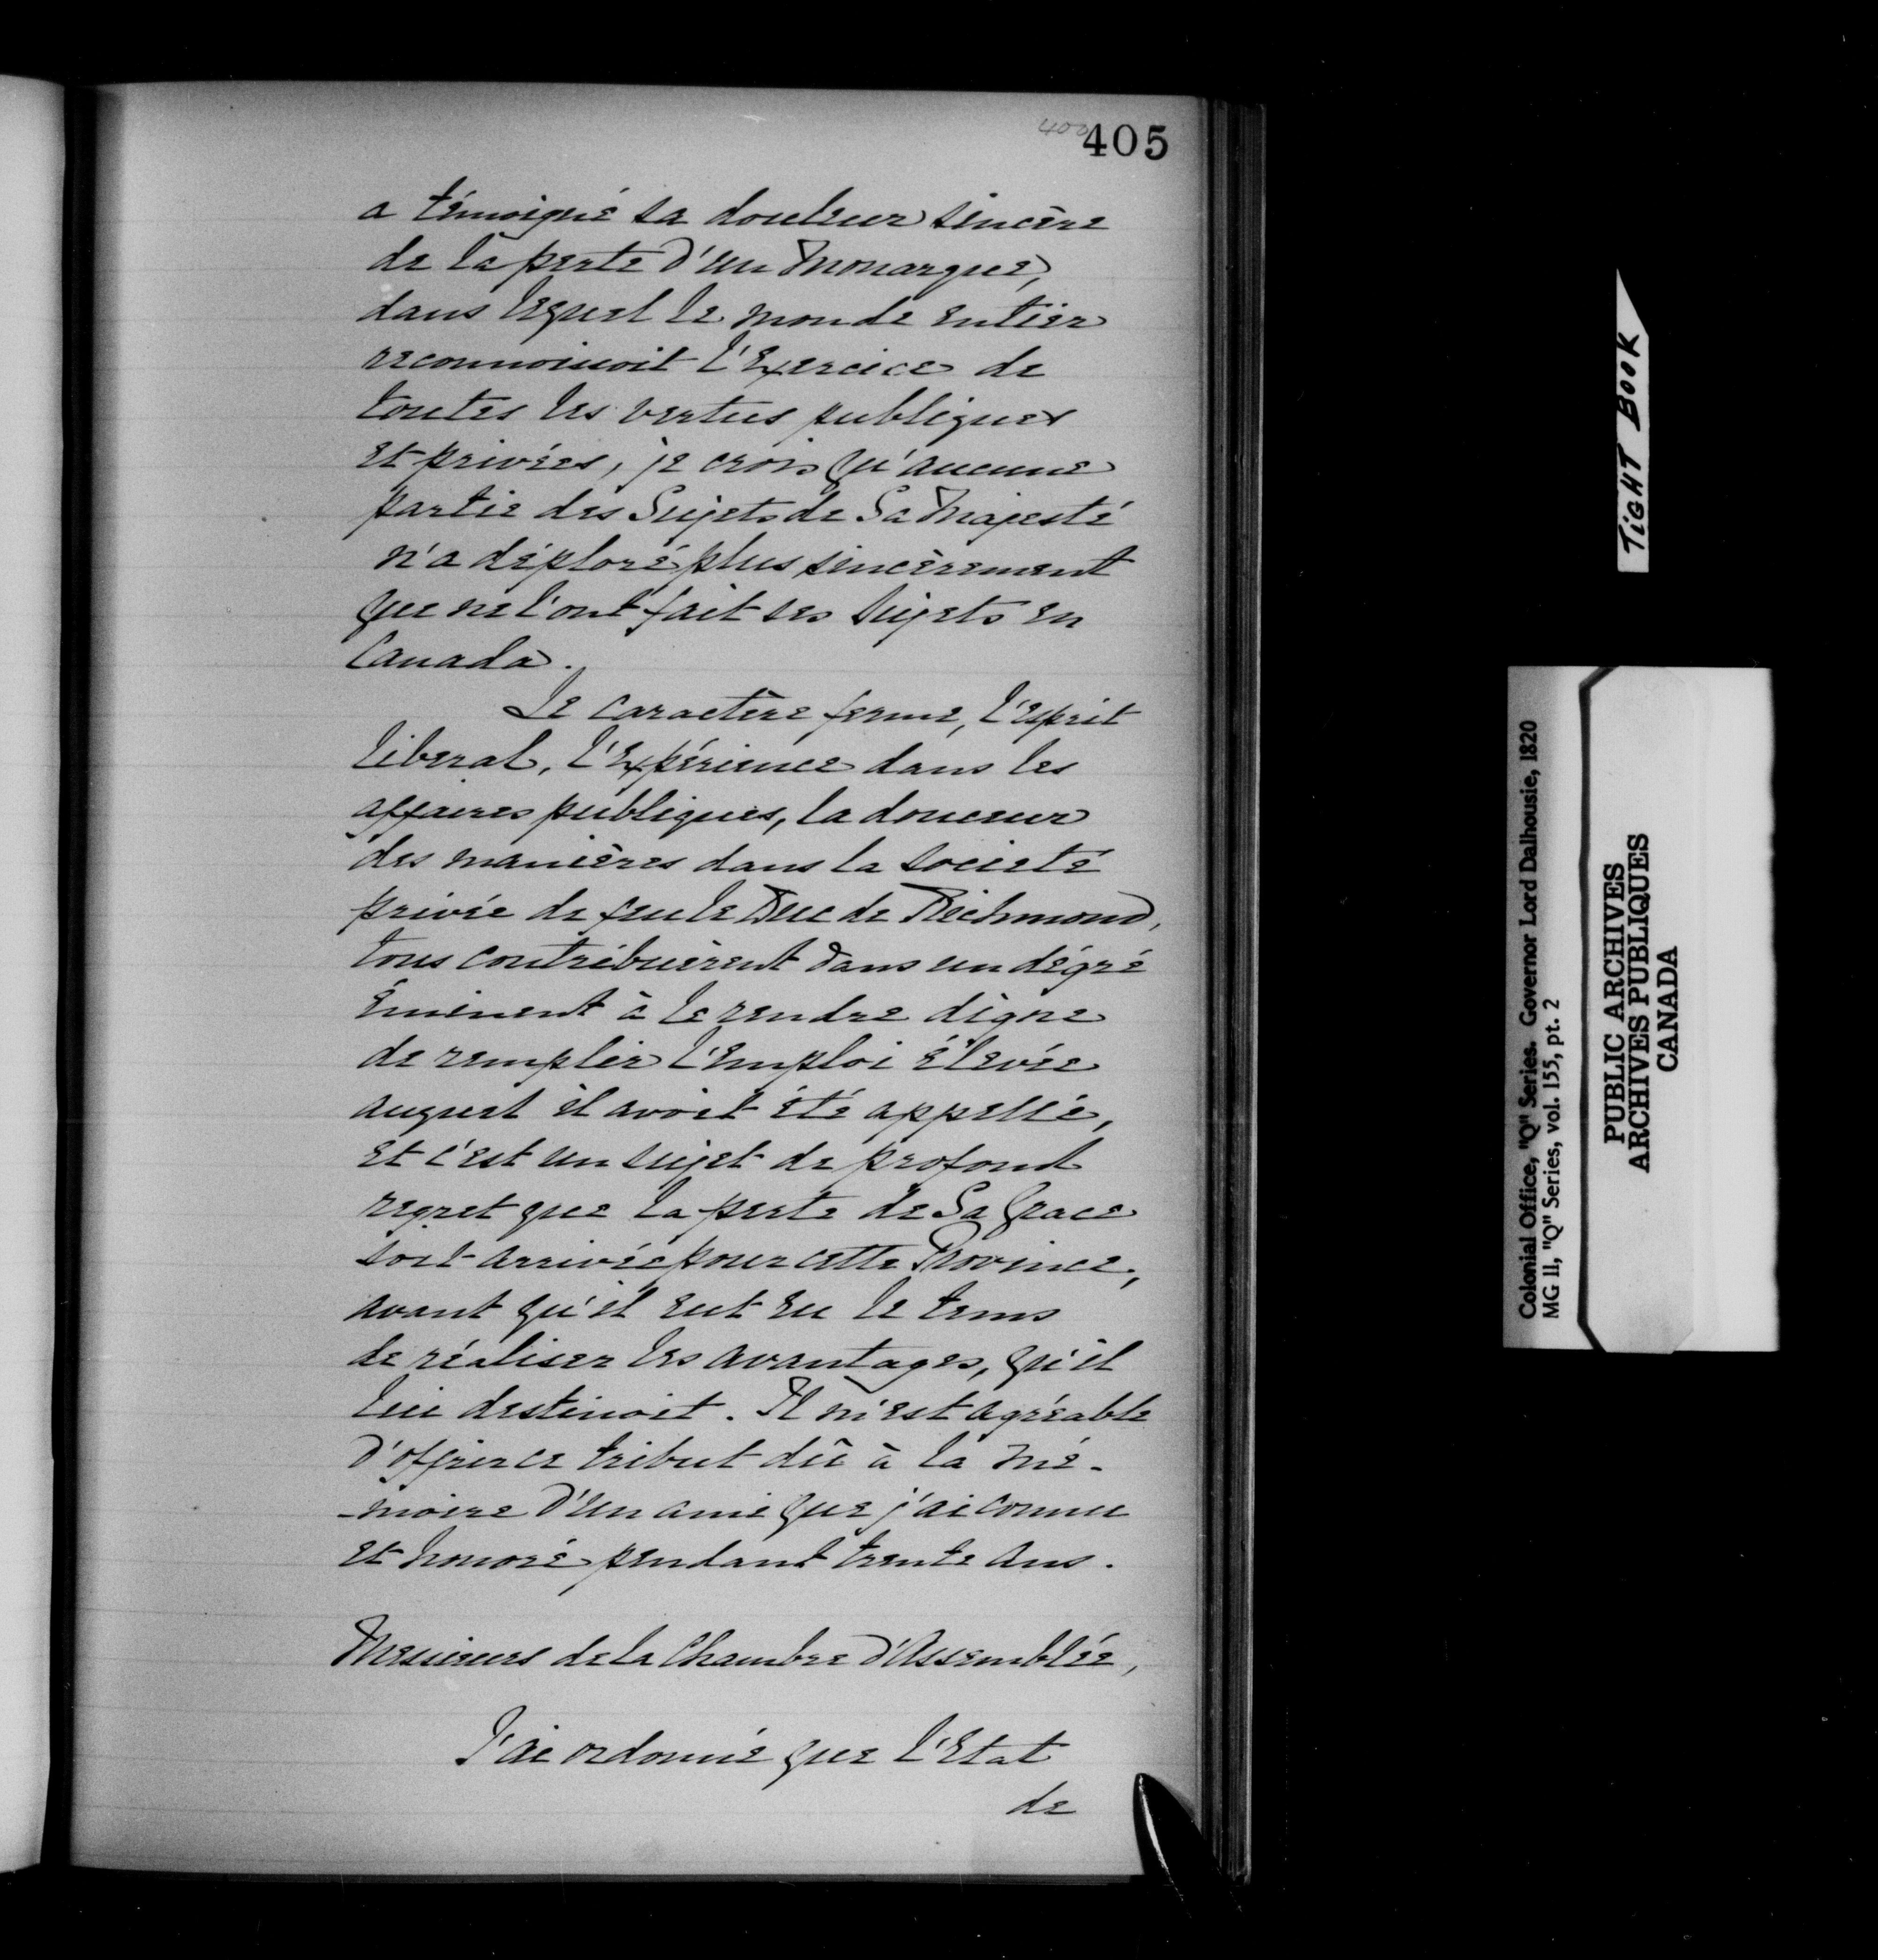 400
405
a témoigné sa douleur sincère
de la perte d'un Monarque,
dans lequel le monde entier
reconnoissoit l'Exercice de
toutes les vertus publiques
et privées, je crois qu'aucune
partie des Sujets de Sa Majesté
n'a déploré plus sincèrement
que ne l'ont fait ses Sujets en
Canada.
Le caractère ferme, l'esprit
liberal, l'Expérience dans les
affaires publiques, la douceur
des manières dans la Societé
privée de feu le Duc de Richmond,
tous contribuèrent dans un dégré
Éminent à le rendre digne
de remplir l'Emploi élevée
auquel il avoit été appellé,
et c'est un sujet de profond
regret que la perte de Sa Grace
soit arrivée pour cette Province,
avant qu'il eut eu le tems
de réaliser les avantages, qu'il
lui destinoit. Il m'est agréable
d'offrir ce tribut dû à la mé-
-moire d'un ami que j'ai connu
et honoré pendant trente ans.
Messieurs de la Chambre d'Assemblée,
J'ai ordonné que l'Etat
de
TIGHT BOOK
Colonial Office, "Q" Series. Governor Lord Dalhousie, 1820
MG 11, "Q" Series, vol. 155, pt. 2
PUBLIC ARCHIVES
ARCHIVES PUBLIQUES
CANADA